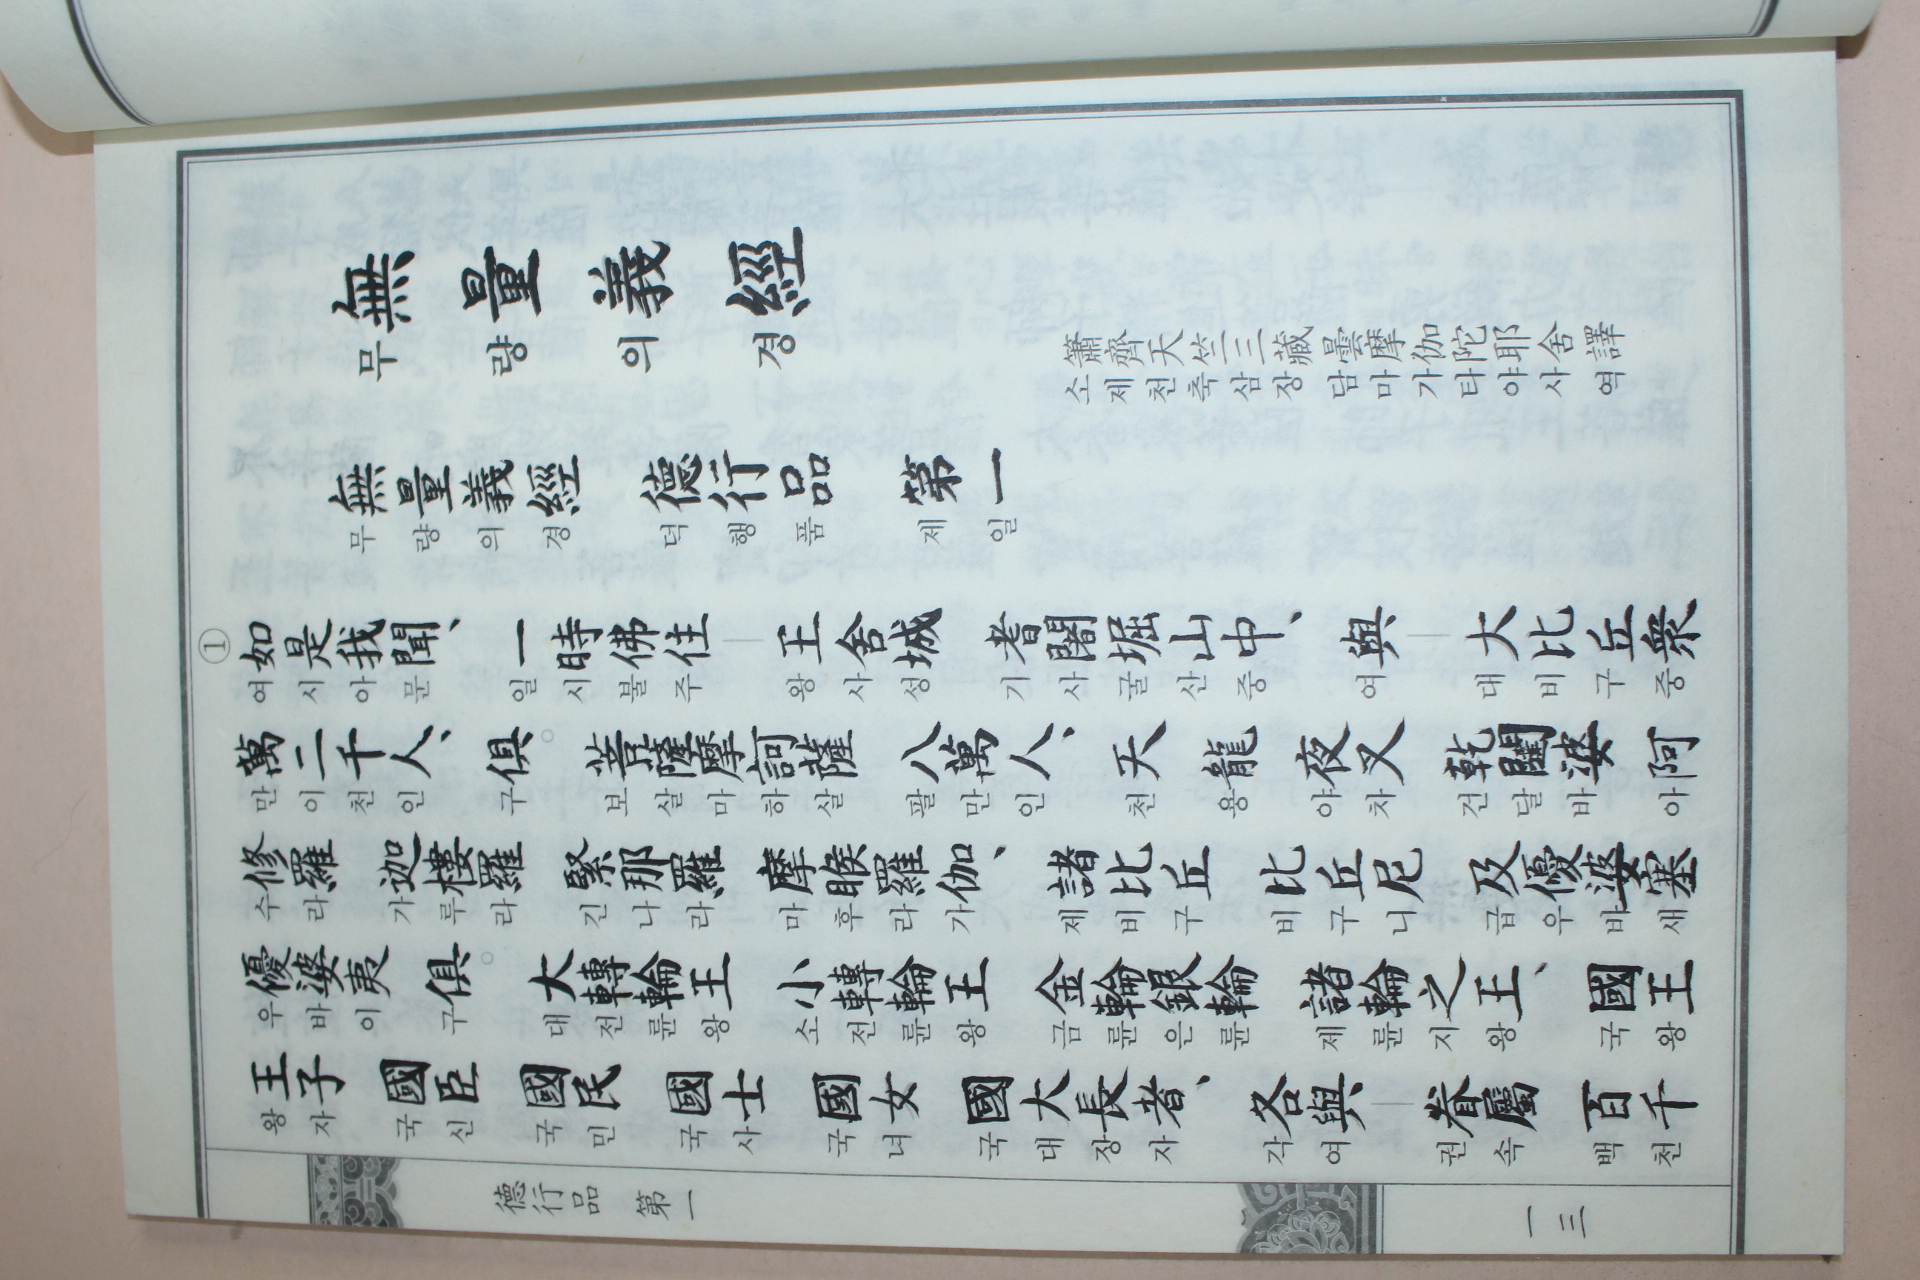 無量義經
무량의경
簫齊天竺三藏 曇摩伽陀耶舍 譯
소제천축삼장 담마가타야사 역
無量義經 德行品 第一
무량의경 덕행품 제일
①
如是我聞、一時佛住 王舍城 耆闍堀山中、與 大比丘衆
여시아문 일시불주 왕사성 기사굴산중 여 대비구중
萬二千人、俱 菩薩摩訶薩 八萬人、天 龍 夜叉 乾闥婆 阿
만이천인 구 보살마하살 팔만인 천 용 야차 건달바 아
修羅 迦樓羅 緊那羅 摩睺羅伽、諸比丘 比丘尼 及優婆塞
수라 가루라 긴나라 마후라가 제비구 비구니 급우바새
優婆夷 俱 大轉輪王 小轉輪王 金輪銀輪 諸輪之王、國王
우바이 구 대전륜왕 소전륜왕 금륜은륜 제륜지왕 국왕
王子 國臣 國民 國士 國女 國大長者、各與 眷屬 百千
왕자 국신 국민 국사 국녀 국대장자 각여 권속 백천
德行品 第一
一三